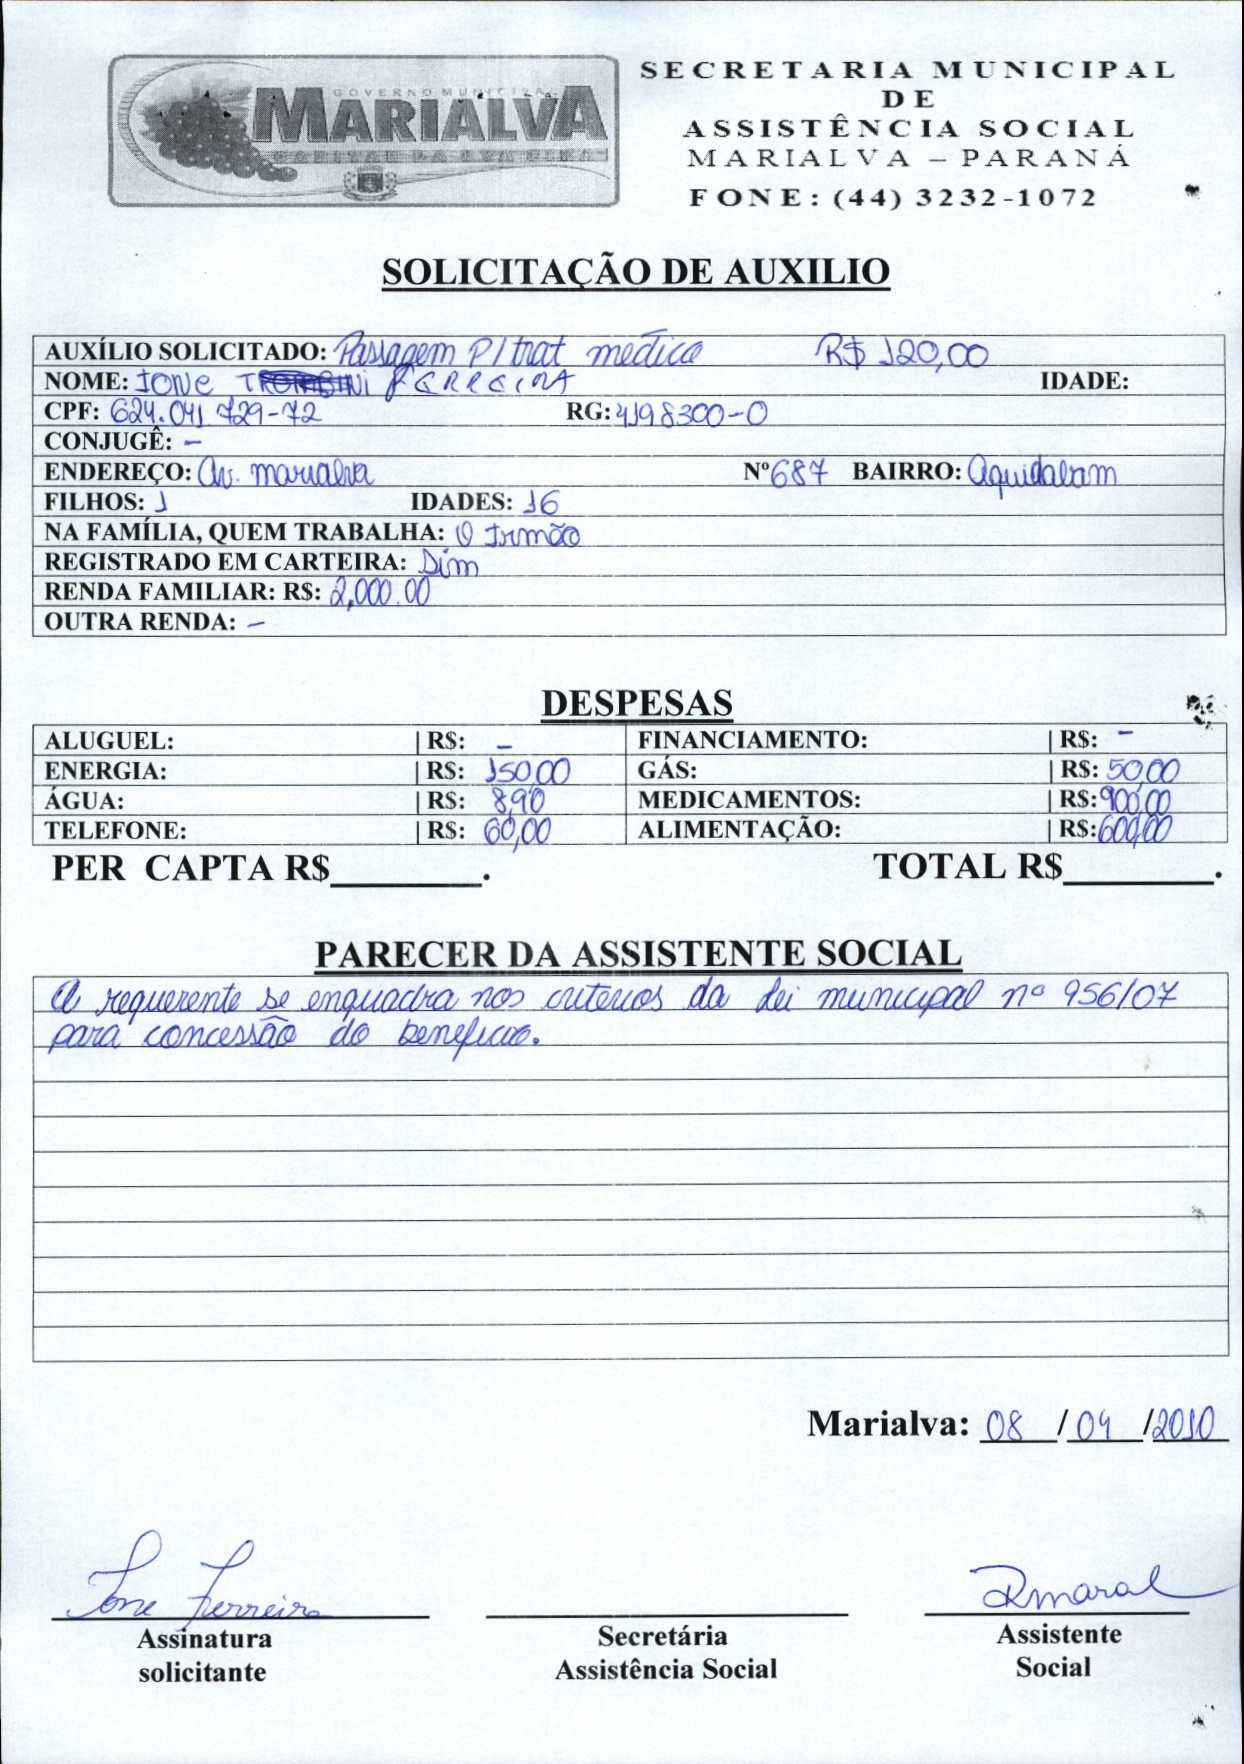 GOVERNO MUNICIPAL
MARIALVA
CAPITAL DA UVA FINA
SECRETARIA MUNICIPAL
DE
ASSISTÊNCIA SOCIAL
MARIALVA – PARANÁ
FONE: (44) 3232-1072
SOLICITAÇÃO DE AUXILIO
AUXÍLIO SOLICITADO: Passagem P/ trat médico R$ 120,00
NOME: IONE FERREIRA IDADE:
CPF: 624.041 729-72 RG: 4198300-0
CONJUGÊ: –
ENDEREÇO: Av. marialva Nº 687 BAIRRO: Aquidabam
FILHOS: 1 IDADES: 16
NA FAMÍLIA, QUEM TRABALHA: O Irmão
REGISTRADO EM CARTEIRA: Sim
RENDA FAMILIAR: R$: 2,000.00
OUTRA RENDA: –
DESPESAS
ALUGUEL: | R$: – FINANCIAMENTO: | R$: –
ENERGIA: | R$: 150,00 GÁS: | R$: 50,00
ÁGUA: | R$: 8,90 MEDICAMENTOS: | R$: 900,00
TELEFONE: | R$: 60,00 ALIMENTAÇÃO: | R$: 600,00
PER CAPTA R$________. TOTAL R$________.
PARECER DA ASSISTENTE SOCIAL
A requerente se enquadra nos criterios da Lei municipal nº 956/07
para concessão do beneficio.
Marialva: 08 / 04 /2010
Ione Ferreira Amaral
Assinatura Secretária Assistente
solicitante Assistência Social Social